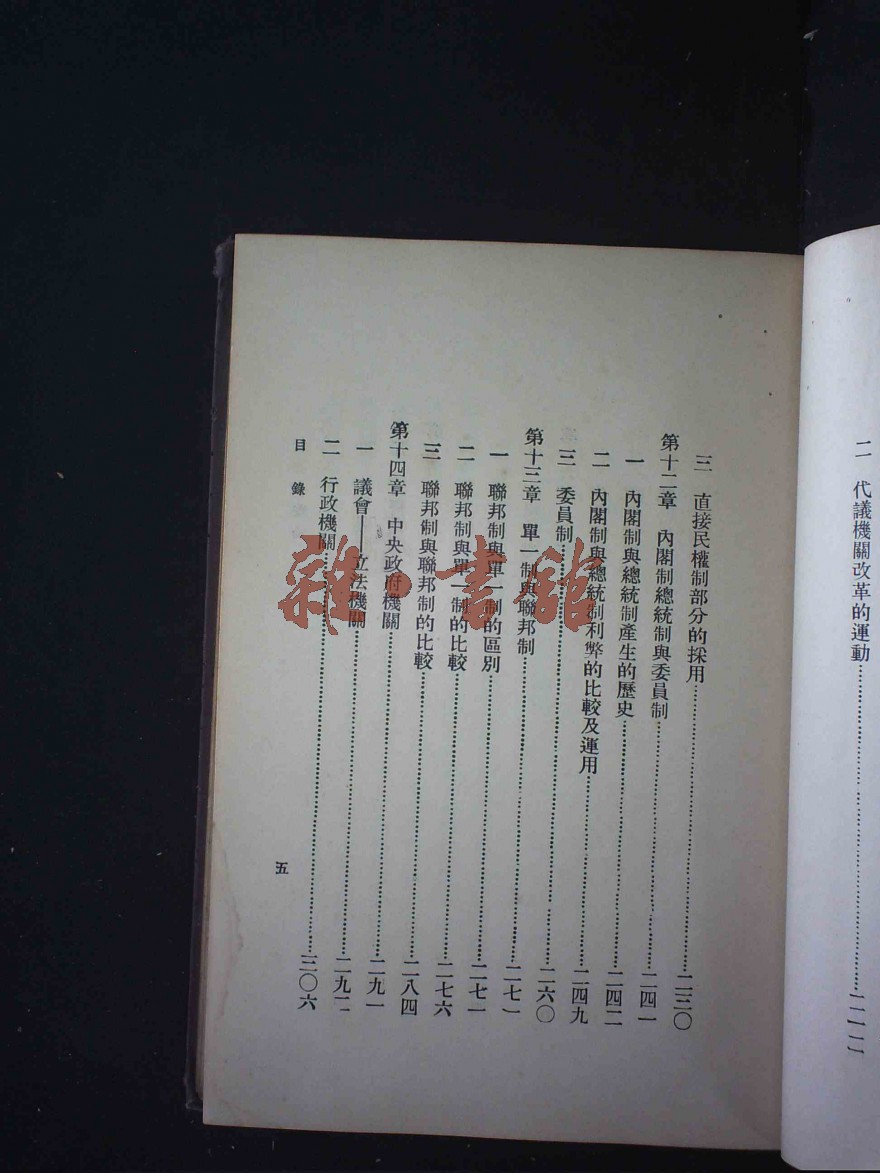 二 代議機關改革的運動……
三 直接民權制部分的採用……二三〇
第十二章 內閣制總統制與委員制……二四一
一 內閣制與總統制產生的歷史……二四二
二 內閣制與總統制利弊的比較及運用……二四九
三 委員制……二六〇
第十三章 單一制與聯邦制……二七一
一 聯邦制與單一制的區別……二七一
二 聯邦制與單一制的比較……二七六
三 聯邦制與聯邦制的比較……二八四
第十四章 中央政府機關……二九一
一 議會——立法機關……二九二
二 行政機關……三〇六
目錄 五
雜·書館